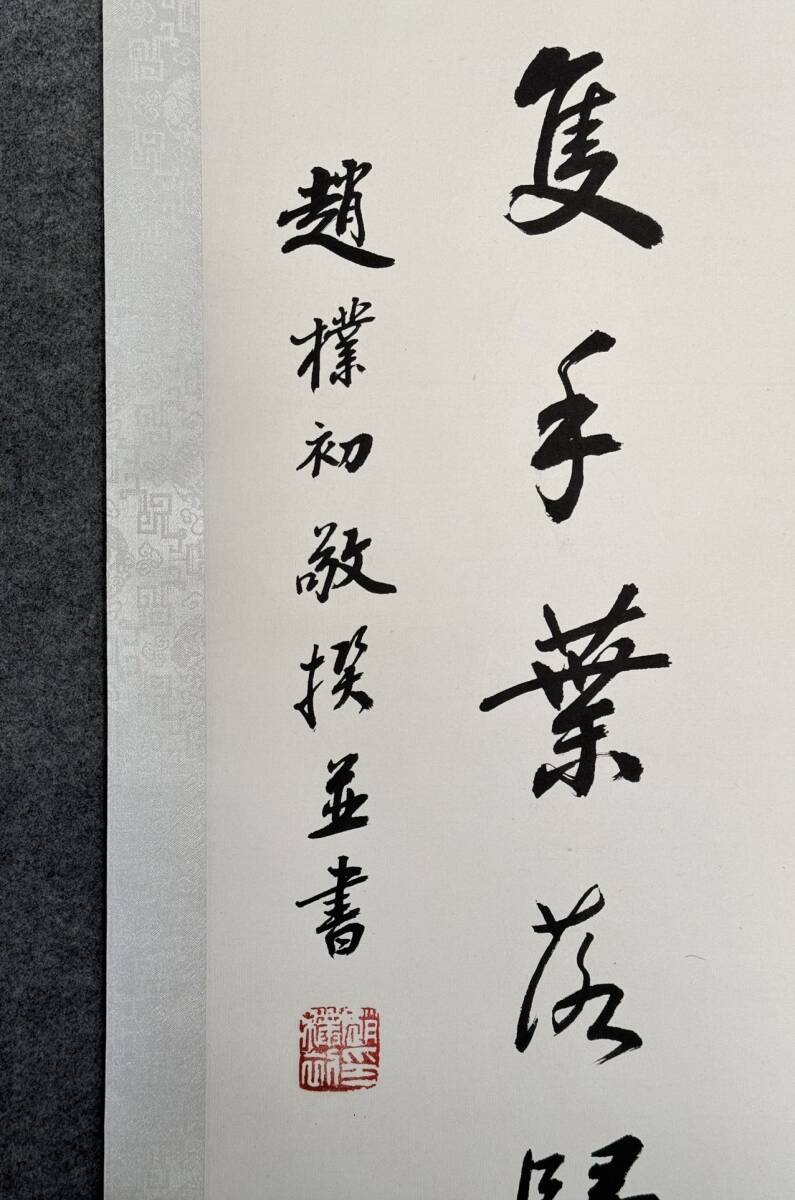 隻手葉落歸
趙樸初敬撰並書
趙樸初印